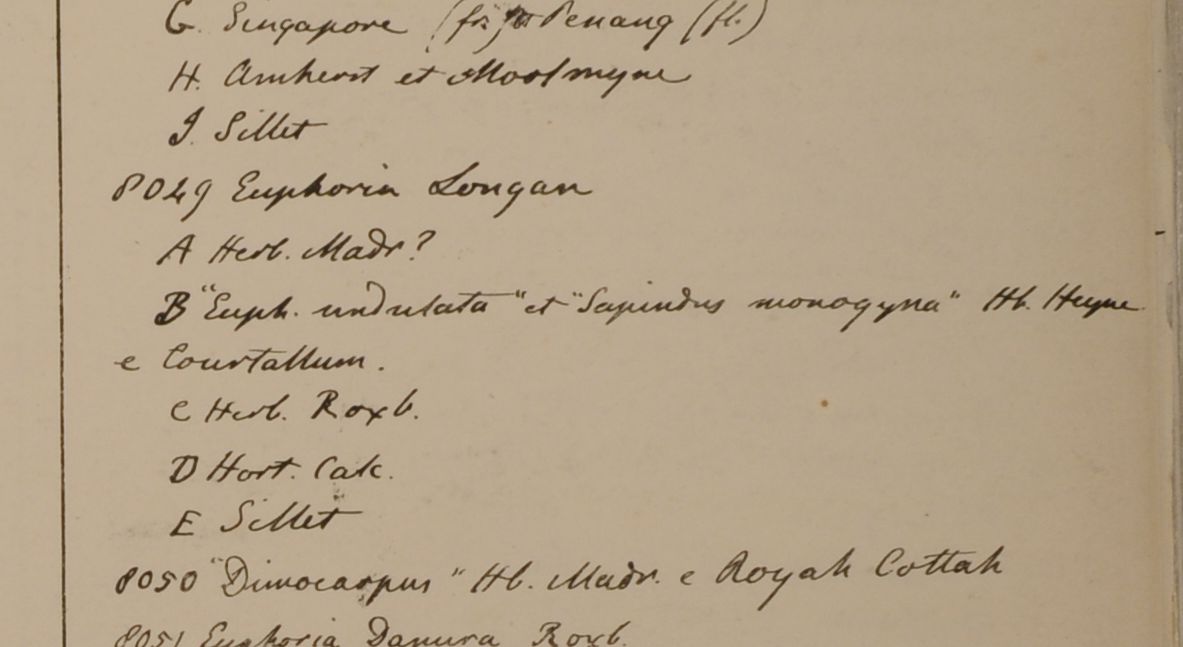 G. Singapore (fr) Penang (fl.)
H. Amherst et Moolmyne
I. Sillet
8049 Euphoria Longan
A Herb. Madr?
B "Euph. undulata" et "Sapindus monogyna" Hb. Heyne
e Courtallum.
C Herb. Roxb.
D Hort. Calc.
E Sillet
8050 "Dimocarpus" Hb. Madr. e Royah Cottah
8051 Euphoria Danura Roxb.